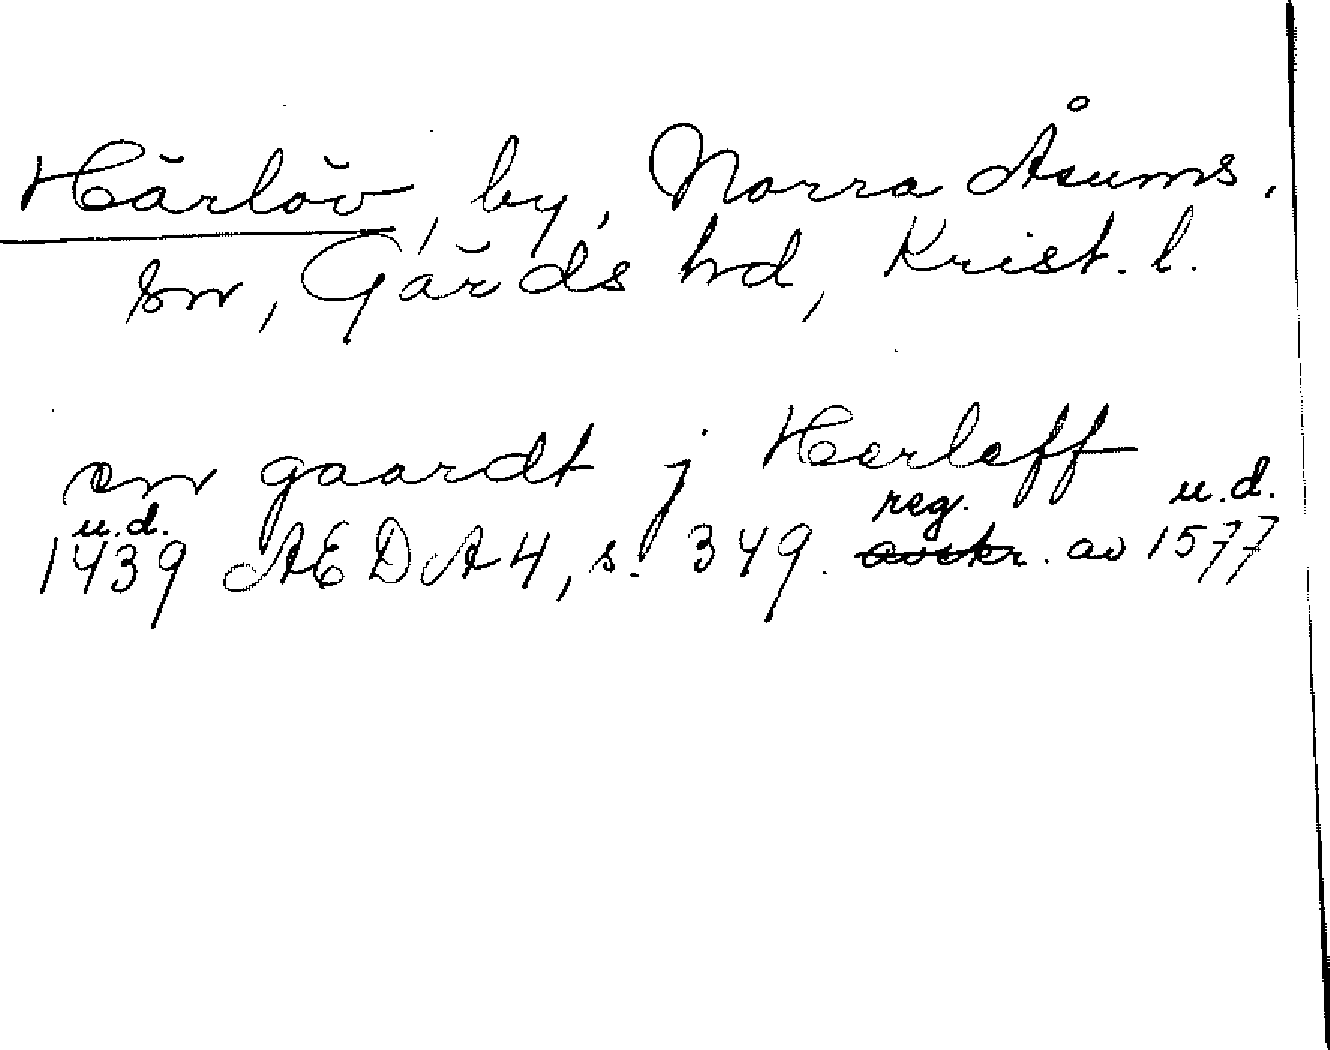 Härlöv, by, Norra Åsums.
sn, Gärds hd, Krist. l.
en gaardt j Herleff
u.d. reg. u.d.
1439 ÆDA 4, s. 349. avskr. av 1577